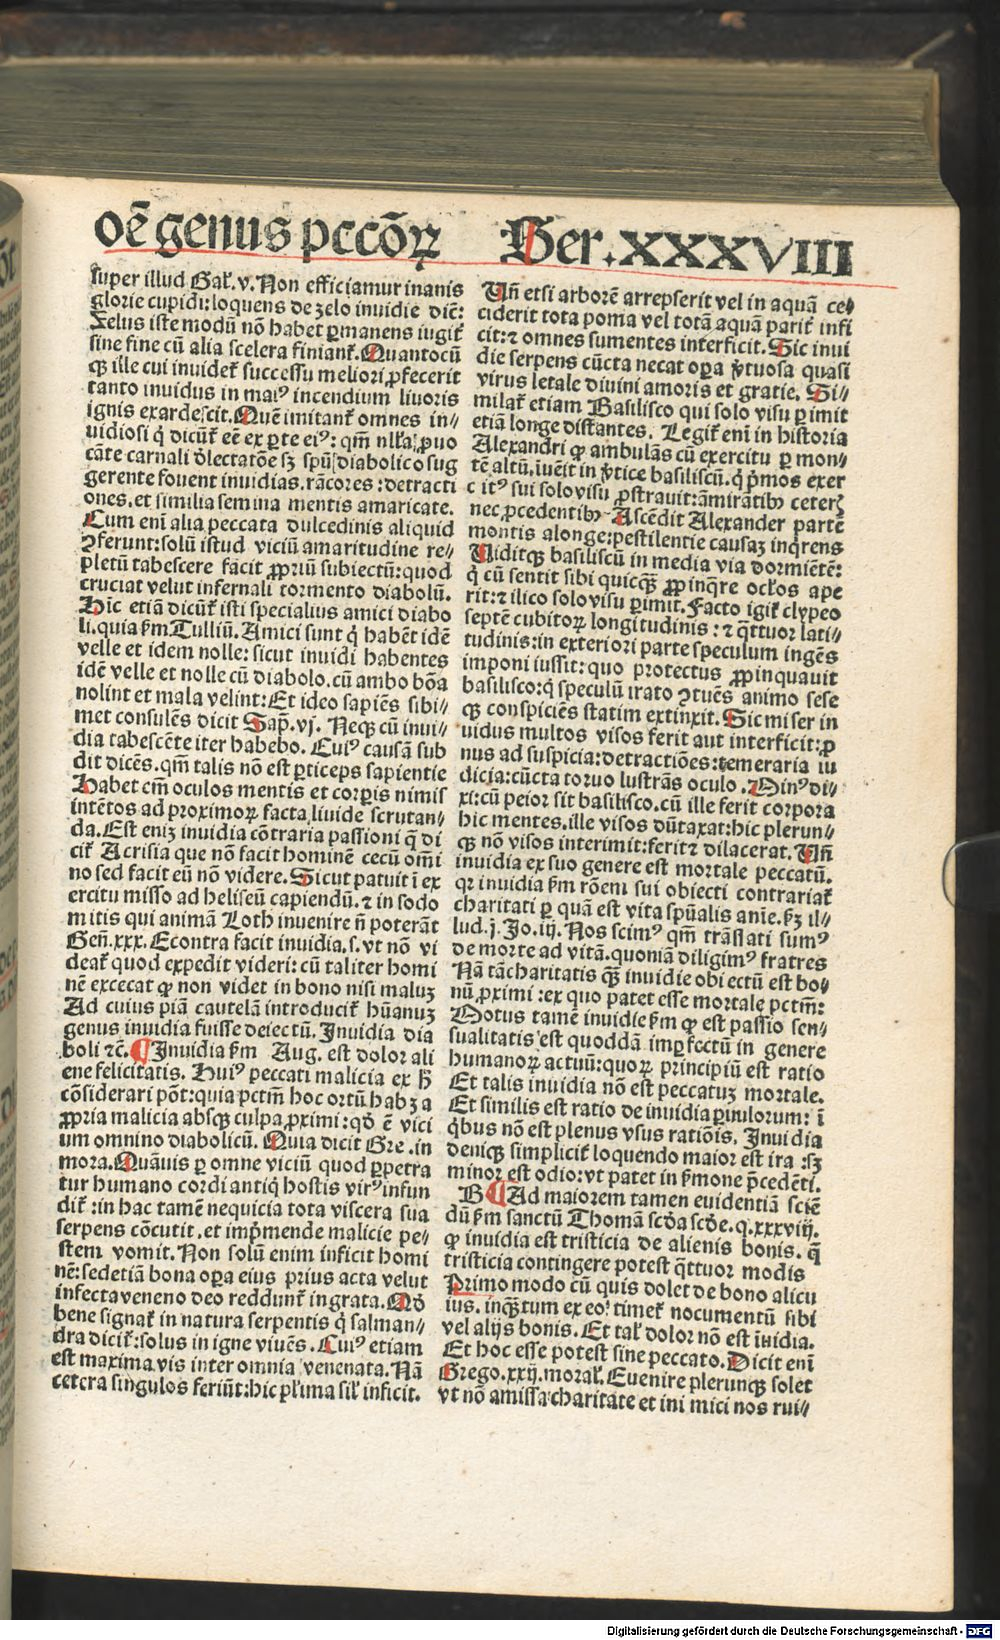 oē genus pccōꝝ Ser. XXXVIII
super illud Gał. v. Non efficiamur inanis
glorie cupidi: loquens de zelo inuidie dic̄:
Zelus iste modū nō habet ꝑmanens iugit̄
sine fine cū alia scelera finiant̄. Quantocū
qꝫ ille cui inuidet̄ successu meliori ꝓfecerit
tanto inuidus in maiꝰ incendium liuoris
ignis exardescit. Quē imitant̄ omnes in⸗
uidiosi q̇ dicūt̄ eē ex ꝑte eiꝰ: qm̄ nll̄a ꝓuo
cāte carnali delectatōe sꝫ spū diabolico sug
gerente fouent inuidias. rācores: detracti
ones. et similia semina mentis amaricate.
Cum eni alia peccata dulcedinis aliquid
ꝯferunt: solū istud viciū amaritudine re⸗
pletū tabescere facit ꝓpriū subiectū: quod
cruciat velut infernali tormento diabolū.
Hic etiā dicūt̄ isti specialius amici diabo
li. quia ẜm Tulliū. Amici sunt q̇ habēt idē
velle et idem nolle: sicut inuidi habentes
idē velle et nolle cū diabolo. cū ambo bōa
nolint et mala velint: Et ideo sapiēs sibi⸗
met consulēs dicit Sap̄. vj. Neqꝫ cū inui⸗
dia tabescēte iter habebo. Cuiꝰ causā sub
dit dicēs. qm̄ talis nō est ꝑticeps sapientie
Habet em̄ oculos mentis et corꝑis nimis
intētos ad proximoꝝ facta liuide scrutan⸗
da. Est eniꝫ inuidia cōtraria passioni q̄ di
cit̄ Acrisia que nō facit hominē cecū om̄i
no sed facit eū nō videre. Sicut patuit ī ex
ercitu misso ad heliseū capiendū. ⁊ in sodo
mitis qui animā Loth inuenire n̄ poterāt
Geñ. xxx. Econtra facit inuidia. s. vt nō vi
deat̄ quod expedit videri: cū taliter homi
nē excecat ꝙ non videt in bono nisi maluꝫ
Ad cuius piā cautelā introducit̄ hūanuꝫ
genus inuidia fuisse deiectū. Inuidia dia
boli ⁊c̄. ¶ Inuidia ẜm Aug. est dolor ali
ene felicitatis. Huiꝰ peccati malicia ex h̄
cōsiderari pōt: quia pctm̄ hoc ortū habꝫ a
ꝓpria malicia absqꝫ culpa ꝓximi: qd̄ ē vici
um omnino diabolicū. Quia dicit Gre. in
mora. Quāuis ꝑ omne viciū quod ꝑpetra
tur humano cordi antiq̇ hostis virꝰ infun
dit̄: in hac tamē nequicia tota viscera sua
serpens cōcutit. et imp̄mende malicie pe⸗
stem vomit. Non solū enim inficit homi
nē: sed etiā bona oꝑa eius prius acta velut
infecta veneno deo reddunt̄ ingrata. Qd̄
bene signat̄ in natura serpentis q̇ salman⸗
dra dicit̄: solus in igne viuēs. Cuiꝰ etiam
est maxima vis inter omnia venenata. Nā
cetera singulos feriūt: hic pl̄ima sil̄ inficit.
Vn̄ etsi arborē arrepserit vel in aquā ce⸗
ciderit tota poma vel totā aquā parit̄ infi
cit: ⁊ omnes sumentes interficit. Sic inui
die serpens cūcta necat oꝑa ꝟtuosa quasi
virus letale diuini amoris et gratie. Si⸗
milat̄ etiam Basilisco qui solo visu ꝑimit
etiā longe distantes. Legit̄ eni in historia
Alexandri ꝙ ambulās cū exercitu ꝑ mon⸗
tē altū. īuēit in ꝟtice basiliscū. q̇ p̄mos exer
c itꝰ sui solo visu ꝓstrauit: āmirātibꝰ ceterꝭ
nec p̄cedentibꝰ Ascēdit Alexander partē
montis alonge: pestilentie causaꝫ inq̇rens
Uiditqꝫ basiliscū in media via dormiētē:
q̇ cū sentit sibi quicqꝫ ꝓpinq̇re ocl̄os ape
rit: ⁊ ilico solo visu ꝑimit. Facto igit̄ clypeo
septē cubitoꝝ longitudinis: ⁊ q̄ttuor lati⸗
tudinis: in exteriori parte speculum ingēs
imponi iussit: quo protectus ꝓpinquauit
basilisco: q̇ speculū irato ꝯtuēs animo sese
qꝫ conspiciēs statim extinxit. Sic miser in
uidus multos visos ferit aut interficit: ꝓ
nus ad suspicia: detractiōes: temeraria iu
dicia: cūcta toruo lustrās oculo. Minꝰ di⸗
xi: cū peior sit basilisco. cū ille ferit corpora
hic mentes. ille visos dūtaxat: hic plerun⸗
qꝫ nō visos interimit: ferit ⁊ dilacerat. Vn̄
inuidia ex suo genere est mortale peccatū.
qꝛ inuidia ẜm rōem sui obiecti contrariat̄
charitati ꝑ quā est vita spūalis anīe. ẜꝫ il⸗
lud. j. Jo. iij. Nos scimꝰ qm̄ trāslati sumꝰ
de morte ad vitā. quoniā diligimꝰ fratres
Nā tā charitatis qꝫ inuidie obiectū est bo⸗
nū ꝓximi: ex quo patet esse mortale pctm̄:
Motus tamē inuidie ẜm ꝙ est passio sen⸗
sualitatis est quoddā imꝑfectū in genere
humanoꝝ actuū: quoꝝ principiū est ratio
Et talis inuidia nō est peccatuꝫ mortale.
Et similis est ratio de inuidia ꝑuuloꝝum: ī
q̇bus nō est plenus vsus ratiōis. Inuidia
deniqꝫ simplicit̄ loquendo maior est ira: sꝫ
minor est odio: vt patet in ẜmone p̄cedēti.
B ¶ Ad maiorem tamen euidentiā sciē
dū ẜm sanctū Thomā scd̄a scd̄e. q. xxxviij.
ꝙ inuidia est tristicia de alienis bonis. q̄
tristicia contingere potest q̄ttuor modis
Primo modo cū quis dolet de bono alicu
ius. inqꝫtum ex eo: timet̄ nocumentū sibi
vel alijs bonis. Et tal̄ dolor nō est īuidia.
Et hoc esse potest sine peccato. Dicit eni
Grego. xxij. moral̄. Euenire plerunqꝫ solet
vt nō amissa charitate et ini mici nos rui⸗
Digitalisierung gefördert durch die Deutsche Forschungsgemeinschaft - DFG